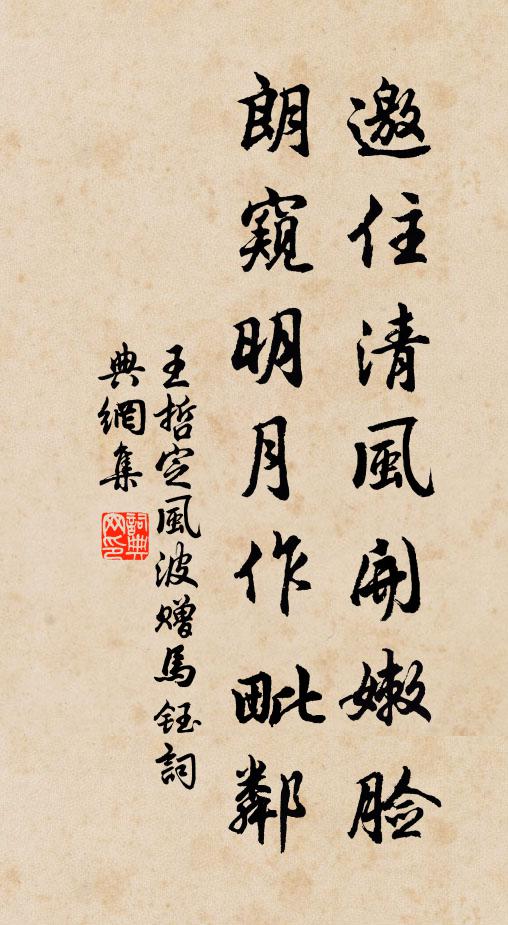 邀住清風開嫩臉
朗窺明月作毗鄰
王哲定風波贈馬鈺詞
典網集
詞典網印